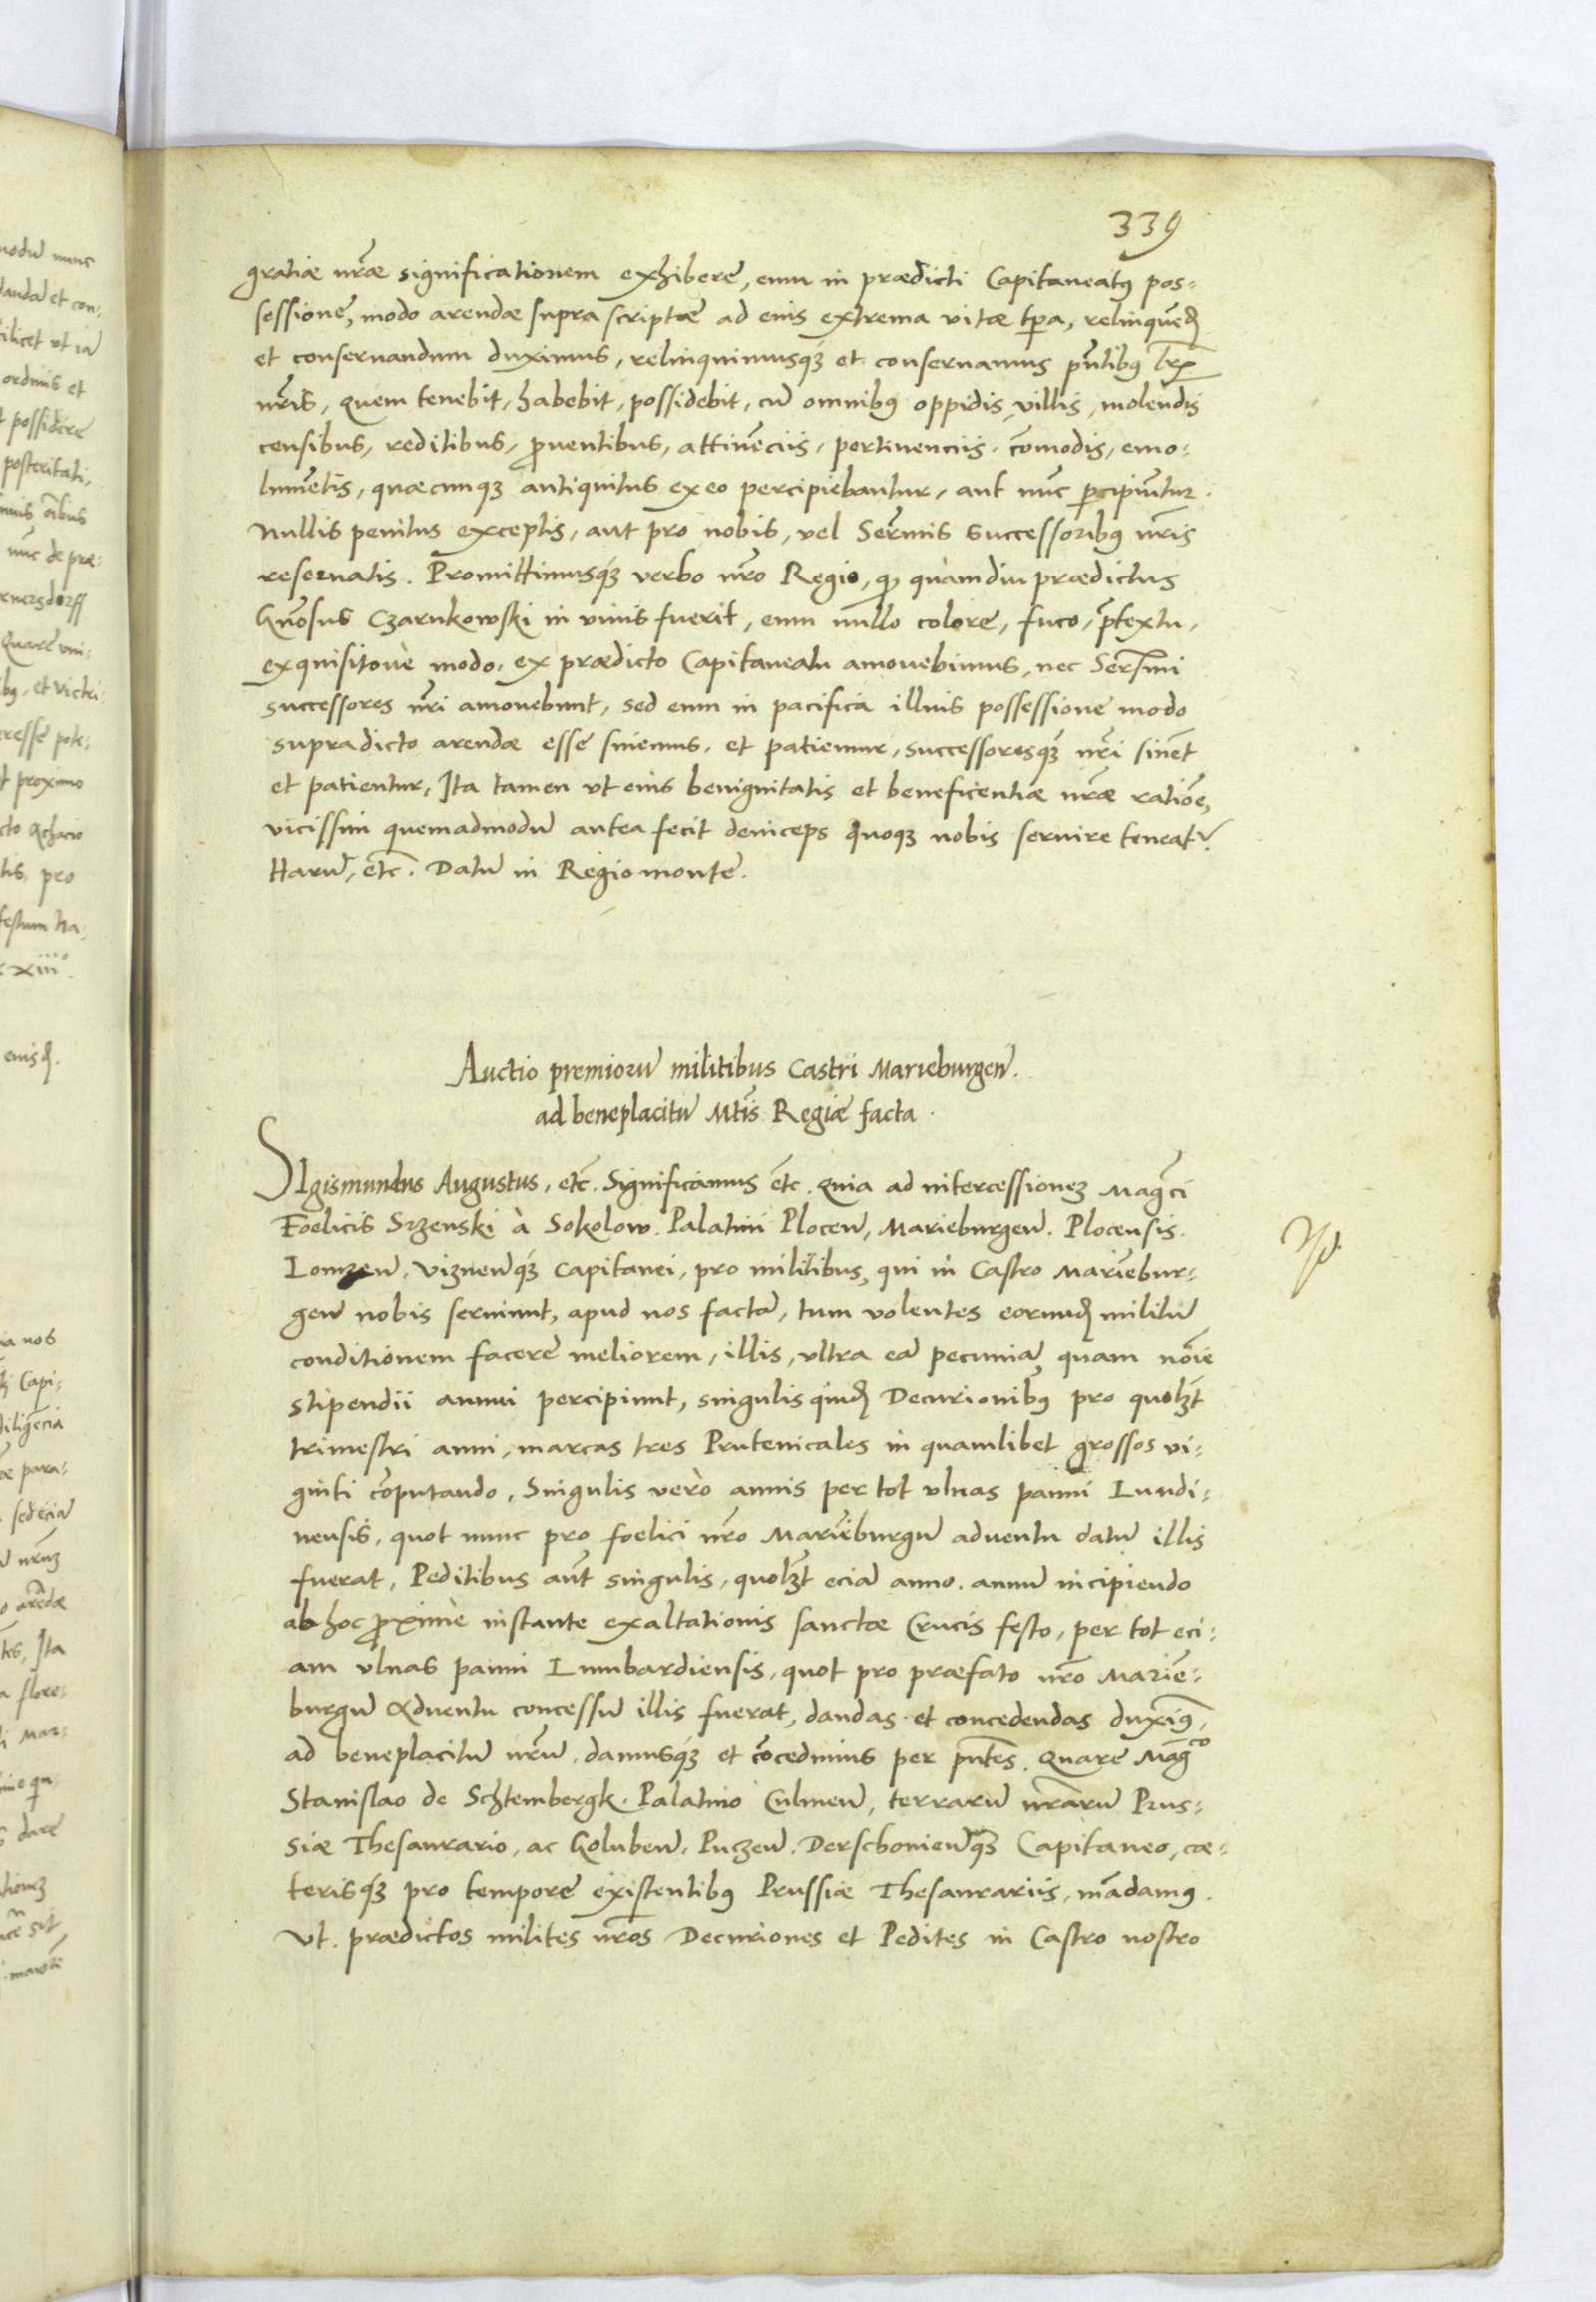 339
gratiæ nr̃æ significationem exhibere, eum in prædicti Capitaneatꝯ pos=
sessione, modo arendæ supra scriptæ ad eius extrema vitæ tp̃a, relinquẽd
et conseruandum duximus, relinquimusqꝫ et conseruamus pñtibꝯ lr̃is
nr̃is, quem tenebit, habebit, possidebit, cũ omnibꝯ oppidis, villis, molendis
censibus, reditibus, ꝓuentibus, attinẽciis, pertinenciis, cõmodis, emo=
lumẽtis, quæcunqꝫ antiquitus ex eo percipiebantur, aut nũc ꝑcipiũtur.
Nullis penitus exceptis, aut pro nobis, vel Ser̃mis successoribꝯ nr̃is
reseruatis. Promittimusqꝫ verbo nr̃o Regio, qꝫ quamdiu prædictus
Gñosus Czarnkowski in viuis fuerit, eum nullo colore, fuco, p̃textu,
exquisitoue modo, ex prædicto Capitaneatu amouebimus, nec Ser̃mi
successores nr̃i amouebunt, sed eum in pacifica illius possessione modo
supradicto arendæ esse sinemus, et patiemur, successoresqꝫ nr̃i sinẽt
et patientur, Ita tamen vt eius benignitatis et beneficentiæ nr̃æ ratiõe,
vicissim quemadmodũ antea fecit deinceps quoqꝫ nobis seruire teneatr.
Harũ, etc̃. Datũ in Regiomonte.
Auctio premiorũ militibus Castri Marieburgeñ.
ad beneplacitũ Mt̃is Regiæ facta.
SIgismundus Augustus, etc̃. Significamus etc̃. Quia ad intercessionẽ Mag̃ci
Foelicis Srzenski à Sokolow. Palatini Ploceñ, Marieburgeñ. Plocensis.
Lomzeñ. Vizneñqꝫ Capitanei, pro militibus, qui in Castro Mariẽbur=
geñ nobis seruiunt, apud nos factã, tum volentes eorundẽ militũ
conditionem facere meliorem, illis, vltra eã pecuniã quam nõie
stipendii annui percipiunt, singulis quidẽ Decurionibꝯ pro quolꝫt
trimestri anni, marcas tres Prutenicales in quamlibet grossos vi=
ginti cõputando, Singulis verò annis per tot vlnas panni Lundi=
nensis, quot nunc pro foelici nr̃o Mariẽburgũ aduentu datũ illis
fuerat, Peditibus aũt singulis, quolꝫt eciã anno, annũ incipiendo
ab hoc ꝓximè instante exaltationis sanctæ Crucis festo, per tot eci=
am vlnas panni Lumbardiensis, quot pro præfato nr̃o Mariẽ=
burgũ Aduentu concessũ illis fuerat, dandas et concedendas duximꝯ,
ad beneplacitũ nr̃um, damusqꝫ et cõcedimus per pñtes. Quare Mag̃co
Stanislao de Schtembergk. Palatino Culmeñ, terrarũ nr̃arũ Prus=
siæ Thesaurario, ac Golubeñ, Puczeñ. Derschonieñqꝫ Capitaneo, cæ=
terisqꝫ pro tempore existentibꝯ Prussiæ Thesaurariis, mãdamꝯ.
Vt. prædictos milites nr̃os Decuriones et Pedites in Castro nostro